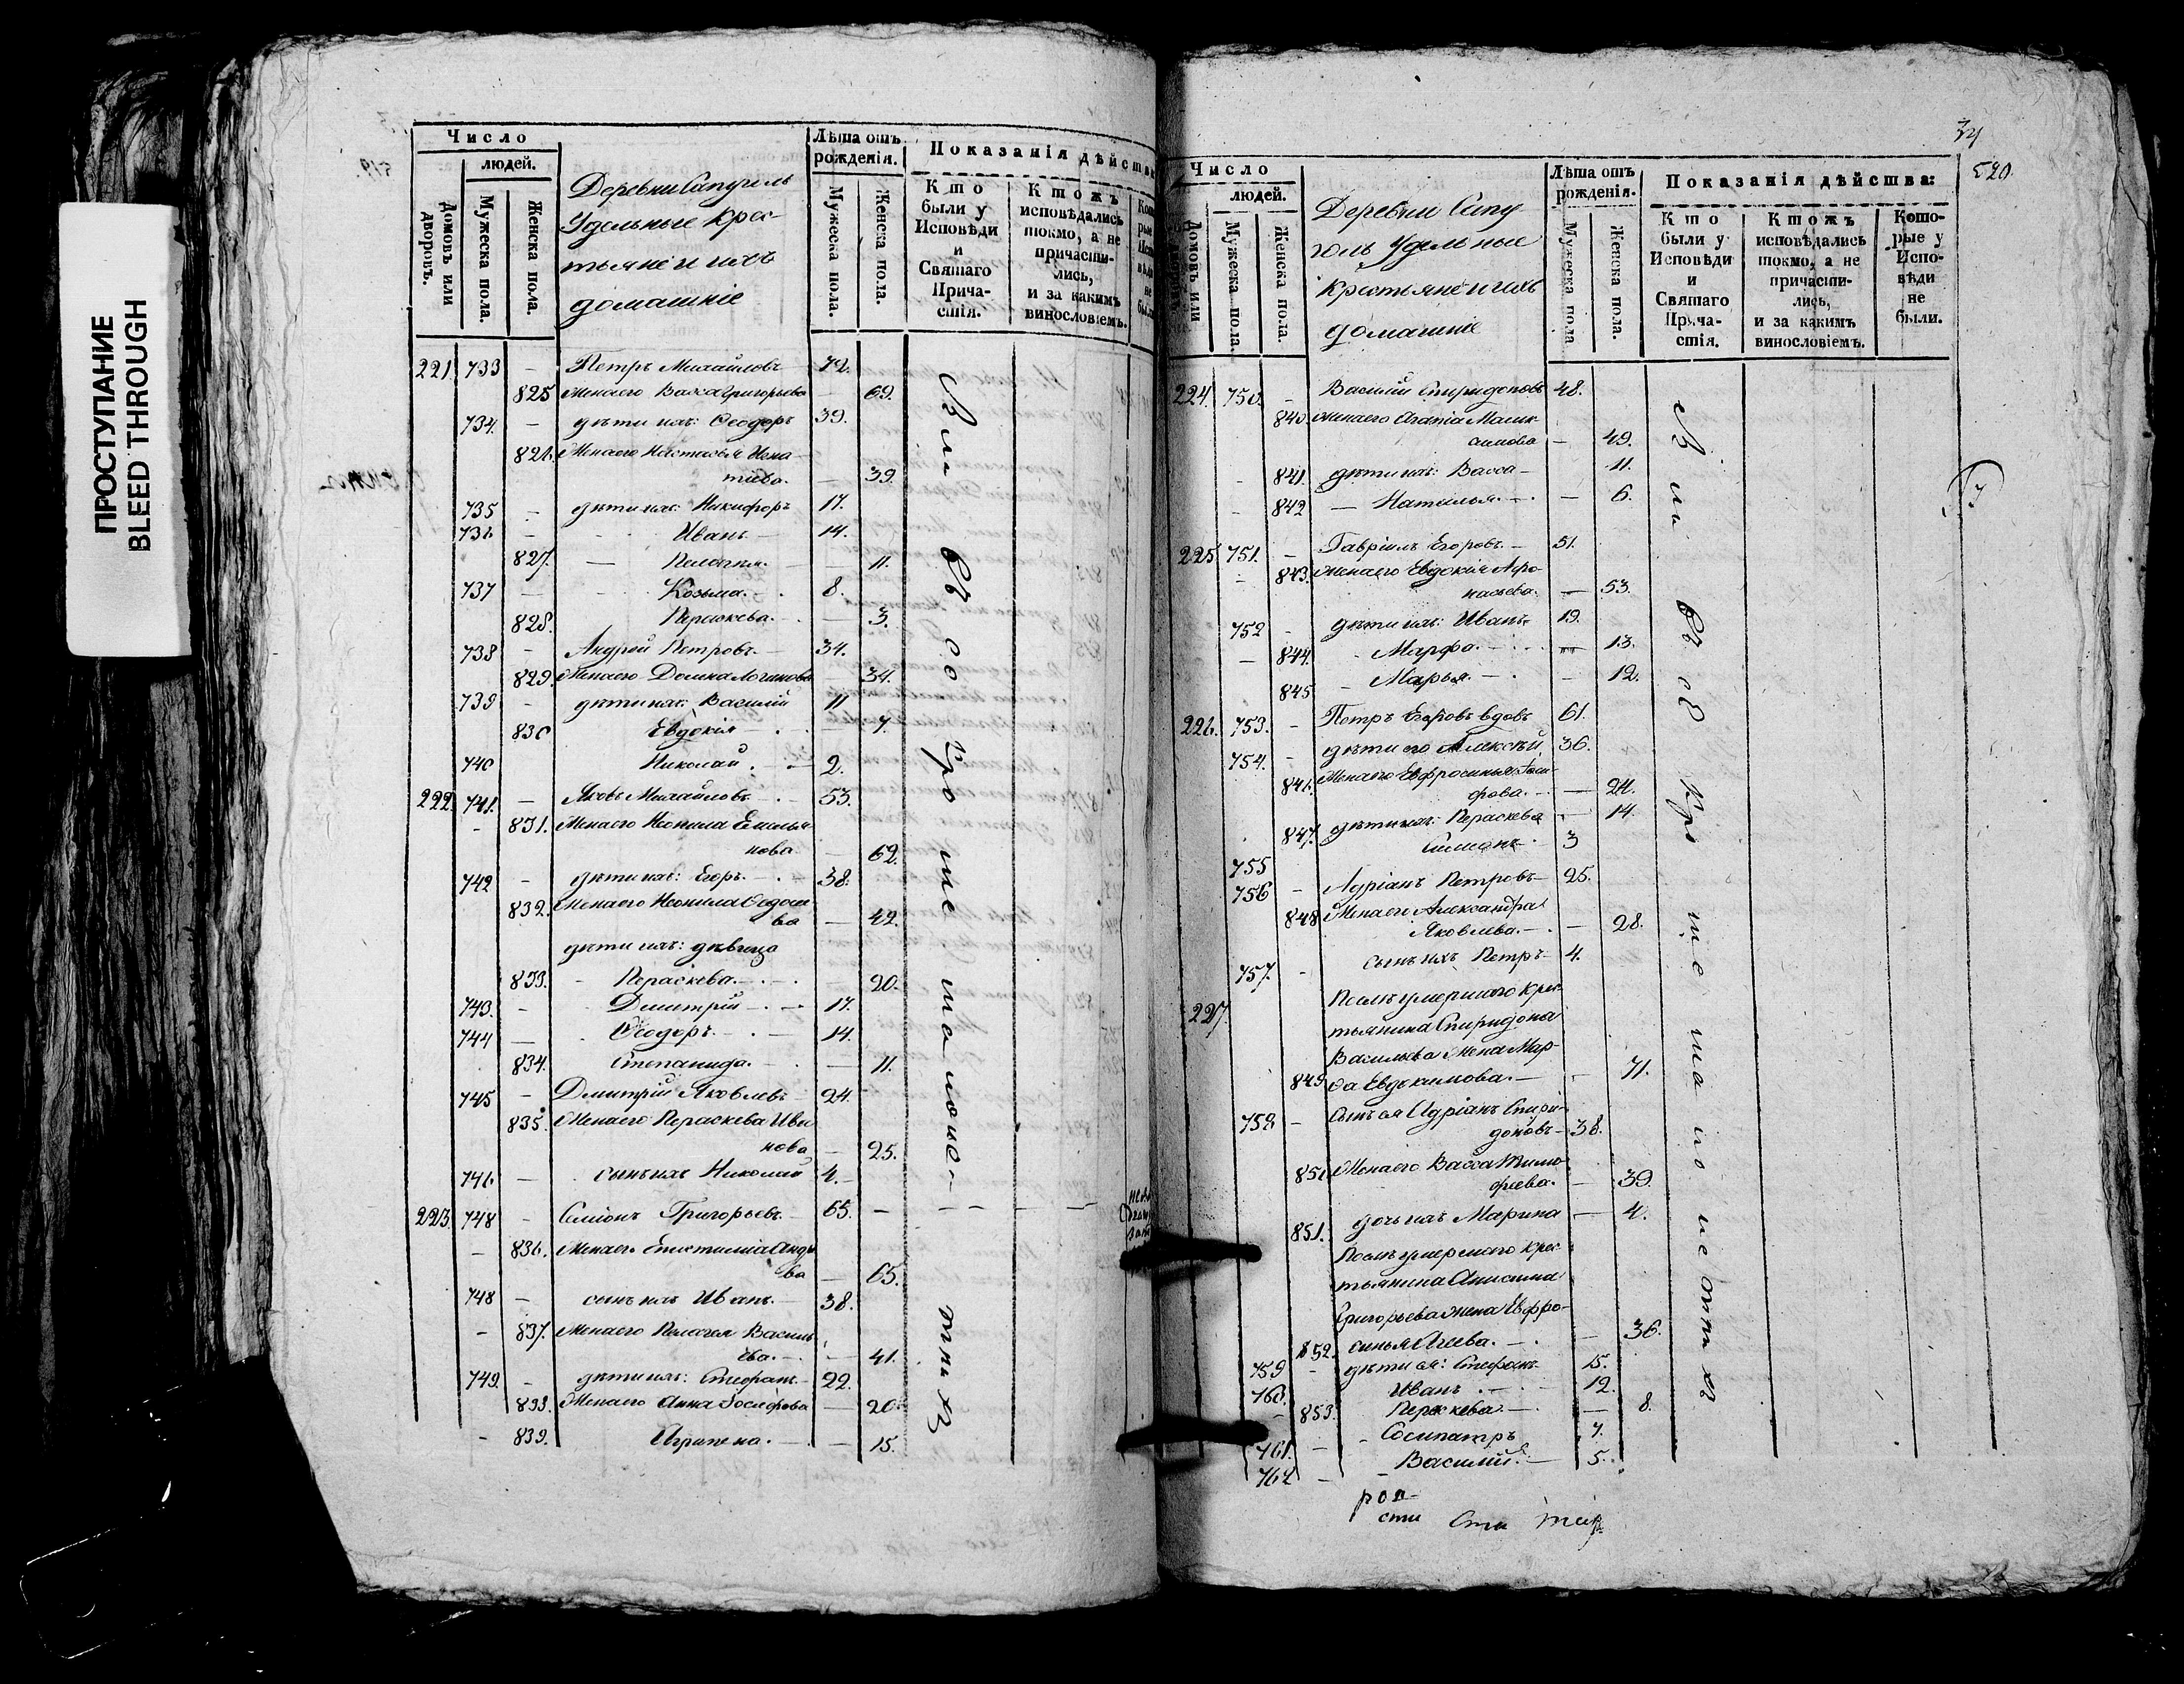 ПРОСТУПАНИЕ
BLEED THROUGH
Число
людей.
Домовъ или дворовъ.
Мужеска пола.
Женска пола.
Деревни Сапуголь
Удельные крес-
тьяне и ихъ
домашніе
Лѣта отъ рожденія.
Мужеска пола.
Женска пола.
Показанія дѣйства
Кто были у Исповѣди и Святаго Причастія.
Ктожъ исповѣдались токмо, а не причастились, и за какимъ винословіемъ.
221. 733 – Петръ Михайловъ 72.
825 Жена его Васса Григорьева – 69.
734. – дѣти ихъ: Ѳеодоръ 39.
826. Жена его Настасья Игна-
тьева. – 39.
735 – дѣти ихъ: Никифоръ 17.
736 – Иванъ – 14.
827. – Пелагия. – 11.
737 – Козьма. – 8.
828. Параскева. – 3.
738 – Андрей Петровъ. – 34.
829. Жена его Домна Логинова – 34.
739 – дѣти ихъ: Василий 11
830 Евдокія – 7.
740 Николай. – 2.
222. 741. – Яковъ Михайловъ. – 53.
831. Жена его Неонила Емелья-
нова – 62.
742 – дѣти ихъ: Егоръ. – 38.
832. Жена его Неонила Ѳедосее
ва – 42.
дѣти ихъ: дѣвица
833. – Параскева. – 20.
743. – Димитрій – 17.
744 – Ѳеодоръ. – 14.
834. Степанида. – 11.
745 – Дмитрій Яковлевъ – 24.
835. Жена его Параскева Ива
нова – 25.
746 – сынъ ихъ Николай 4. –
223. 748 – Симіонъ Григорьевъ. 65. –
836. Жена его Епистимія Андре
ва – 65.
748 – сынъ ихъ Иванъ. – 38.
837. Жена его Пелагея Василь
ева. – 41.
749. – дѣти ихъ: Стефанъ. – 22.
838. Жена его Анна Іосифова – 20.
839. Агрипена. – 15.
34
520.
Число
людей.
Домовъ или
Мужеска пола.
Женска пола.
Деревни Сапу
голь Удельные
крестьяне и ихъ
домашніе
Лѣта отъ рожденія.
Мужеска пола
Женска пола.
Показанія дѣйства:
Кто были у Исповѣди и Святаго Причастія.
Ктожъ исповѣдались токмо, а не причастились, и за какимъ винословіемъ.
Которые у Исповѣди не были.
224. 750. – Василій Спиридоновъ 48.
840. Жена его Агапія Мак-
симова – 49.
841. дѣти ихъ: Васса – 11.
842 – Наталья. – 6.
225. 751. – Гавріилъ Егоровъ. – 51.
843. Жена его Евдокія Афо-
насьева. – 53.
752 – дѣти ихъ: Иванъ. 19.
844. Марфа. – 13.
845 – Марья. – 12.
226. 753. – Петръ Егоровъ вдовъ 61.
754. – дѣти его Алексѣй 36.
846. Жена его Евфросинья
847. дѣти ихъ: Параскева – 14.
755 3
756 – Адріанъ Петровъ – 25.
848 Жена его Александра
Яковлева. – 28.
757. – сынъ ихъ Петръ – 4.
227. Послѣ умершаго крес-
тьянина Спиридона
Васильева жена Мар-
849 ѳа Евдокимова. – 71.
758 – Сынъ ея Адріанъ Спири-
доновъ – 38.
850 Жена его Васса Тимо
феева. – 39.
851. дочь ихъ Марина – 4.
Послѣ умершаго крес
тьянина Анисима
Григорьева жена Евфро-
852. синья Агеева. – 36.
759 – дѣти ея: Стефанъ 15.
760. Иванъ. – 12.
853. Параскева. – 8.
761. – Сосипатръ 7.
762 – Василій. – 5.
рол
сти